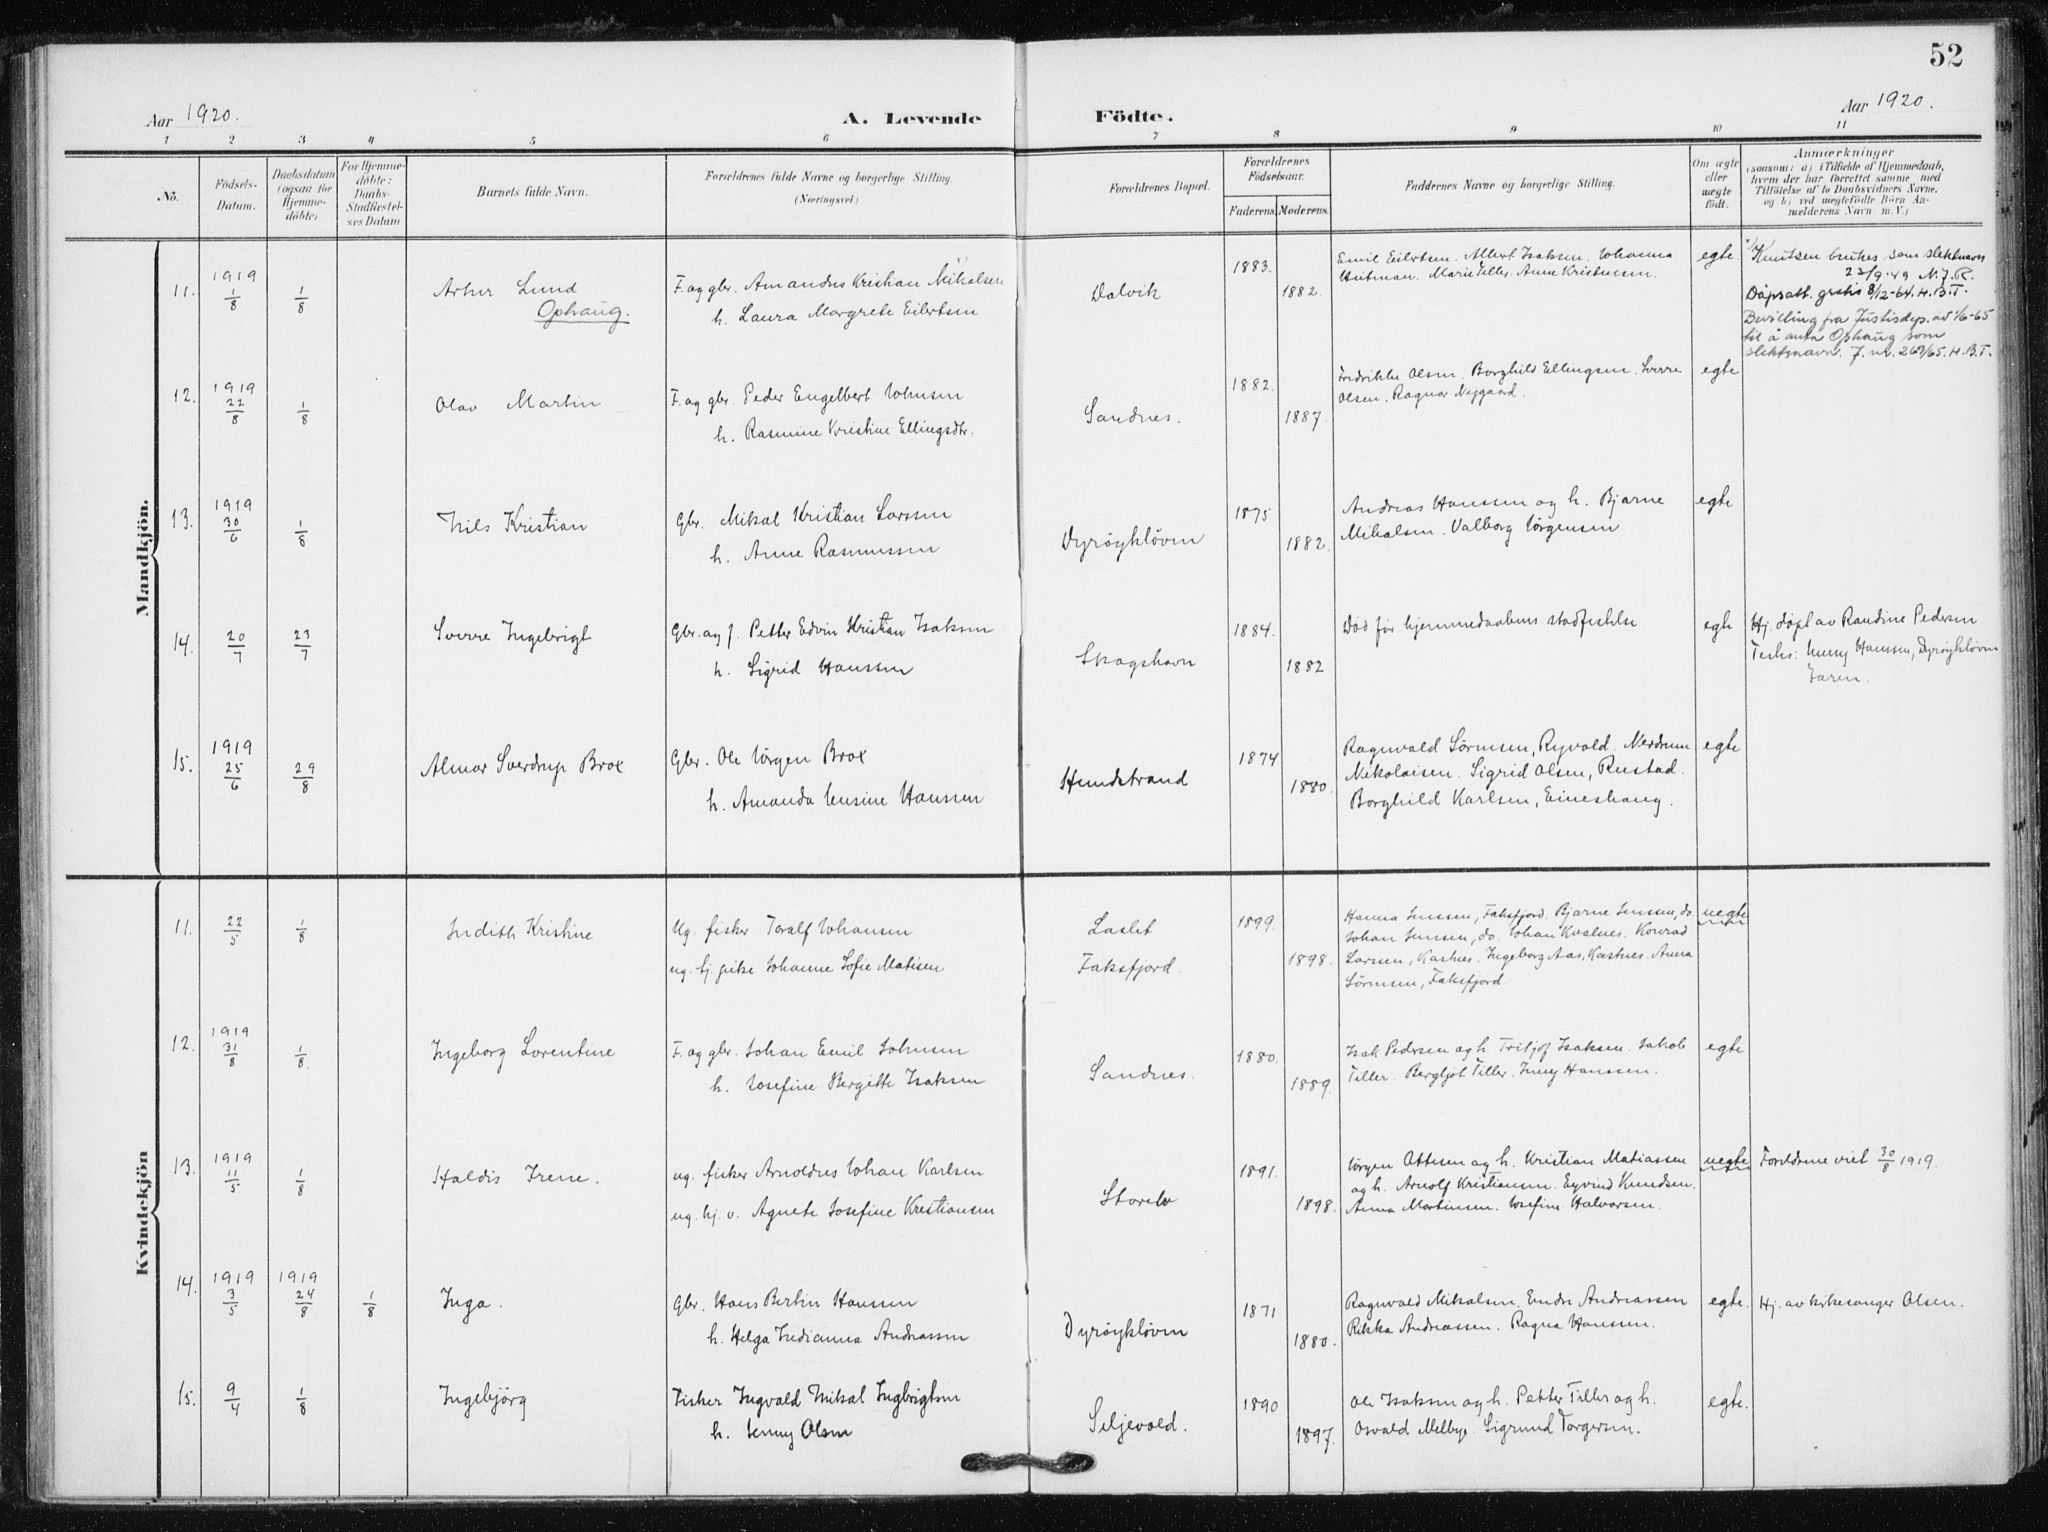 52
Aar 1920.
A. Levende
Födte.
Aar 1920.
1 2 3 4 5 6 7 8 9 10 11
No.
Födsels-Datum.
Daabsdatum (ogsaa for Hjemmedöbte)
For Hjemmedöbte: Daabs-Stadfæstelses Datum
Barnets fulde Navn.
Forældrenes fulde Navne og borgerlige Stilling.
(Næringsvei.)
Forældrenes Bopæl.
Forældrenes Födselsaar.
Faderens. Moderens.
Faddernes Navne og borgerlige Stilling.
Om ægte eller uægte födt.
Anmærkninger
(saasom: a) i Tilfælde af Hjemmedaab,
hvem der har forrettet samme med
Tilföielse af to Daabsvidners Navne.
og b) ved uægtefödte Börn An-
melderens Navn m. V.)
Mandkjön.
11. 1919 1/8 1/8 Artur Lund F. og gbr. Amandus Kristian Mikalsen
Ophaug. h. Laura Margrete Eilertsen
Dalvik 1883. 1882.
Emil Eilertsen. Albert Isaksen. Johanna
Marie Tiller. Anne Kristensen.
egte.
Knutsen brukes som slektsnavn
23/9-49 N.J.R.
Dåpsatt. gratis 8/12-64. H.B.T.
Bevilling fra Justisdep. av 1/6-65
til å anta Ophaug som
slektsnavn. J. nr. H.B.T.
12. 1919 22/8 1/8 Olav Martin F. og gbr. Peder Engelbert Johnsen
h. Rasmine Kristine Ellingsdtr.
Sandnes. 1882. 1887.
Fredrikke Olsen. Borghild Ellingsen. Sverre
Olsen. Ragnar Nygaard.
egte
13. 1919 30/6 1/8 Nils Kristian Gbr. Mikal Kristian Larssen
h. Anne Rasmussen
Dyrøykløven 1875 1882.
Andreas Hanssen og h. Bjarne
Mikalsen. Valborg Jørgensen
egte
14. 20/7 23/7 Sverre Ingebrigt Gbr. og f. Petter Edvin Kristian Isaksen
h. Sigrid Hanssen
Skagshavn 1884. 1882
Død før hjemmedaabens stadfestelse
egte
Hj. døpt av Randine Pedersen
Testes: Jenny Hanssen, Dyrøykløven
Faren.
15. 1919 25/6 29/8 Almar Sverdrup Brox Gbr. Ole Jørgen Brox
h. Amanda Jensine Hanssen
Hundstrand 1874 1880.
Ragnvald Sørensen, Ryvold. Nerdrum
Nikolaisen. Sigrid Olsen, Rustad.
Borghild Karlsen, Eineshaug.
egte
Kvindekjön
11. 22/5 1/8 Judith Kristine Ug. fisker Toralf Johansen
ug. tj. pike Johanne Sofie Matisen
Laslet
Faksfjord. 1899. 1898.
Hanna Jenssen, Faksfjord. Bjarne Jenssen, do.
Johan Jenssen, do. Johan Kvalnes. Konrad
Larsen, Kastnes. Ingeborg Aas, Kastnes. Anna
Sørensen, Faksfjord.
uegte
12. 1919 31/8 1/8. Ingeborg Lorentine F. og gbr. Johan Emil Johnsen
h. Josefine Bergitte Isaksen
Sandnes. 1880. 1889.
Isak Pedersen og h. Tritjof Isaksen. Jakob
Tiller. Bergljot Tiller. Jenny Hanssen.
egte
13. 1919 11/5 1/8 Haldis Irene. ug. fisker Arnoldus Johan Karlsen
ug. hj. v. Agnete Josefine Kristiansen
Storelv 1891. 1898.
Jørgen Ottesen og h. Kristian Matiassen
og h. Arnolf Kristiansen. Eyvind Knudsen.
Anna Martinsen. Josefine Halvorsen.
uegte
Foreldrene viet 30/8 1919.
14. 1919 3/5 1919 24/8 1/8 Inga. Gbr. Hans Bertin Hanssen
h. Helga Indianna Andreassen
Dyrøykløven 1871 1880.
Ragnvald Mikalsen. Endre Andreassen
Rikka Andreassen. Ragna Hanssen.
egte.
Hj. av kirkesanger Olsen.
15. 9/4 1/8 Ingebjörg Fisker Ingvald Mikal Ingbrigtsen
h. Jenny Olsen
Seljevold. 1890 1897.
Ole Isaksen og h. Petter Tiller og h.
Osvald Melbye. Sigrund Torgersen.
egte.